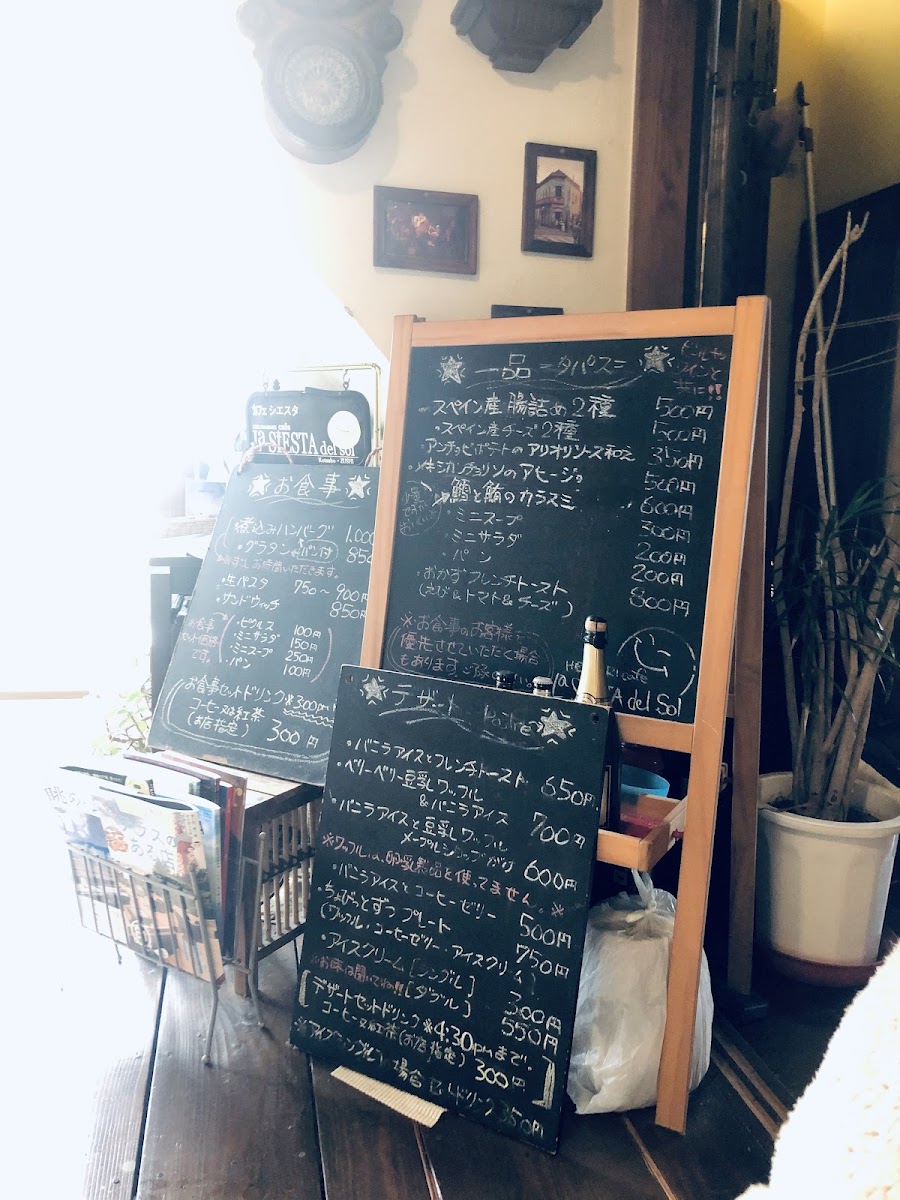 カフェ シエスタ
la SIESTA del sol
お食事
煮込みハンバーグ 1,000
・グラタン(パン付) 850
お時間いただきます。
・生パスタ 750〜900円
・サンドウィッチ 850円
お食事
セット価格
です。
・ピクルス 100円
・ミニサラダ 150円
・ミニスープ 250円
・パン 100円
お食事セットドリンク※300円
コーヒー又は紅茶
(お店指定) 300円
一品 =タパス=
ビールや
ワインと
共に!!
・スペイン産 腸詰め2種 500円
・スペイン産チーズ2種 500円
アンチョビポテトのアリオリソース和え 350円
のアヒージョ 500円
鱈と鮪のカラスミ 600円
・ミニスープ 300円
・ミニサラダ 200円
・パン 200円
・おかずフレンチトースト 800円
(えび&トマト&チーズ)
※お食事のお客様を
優先させていただく場合
もあります。
cafe
del Sol
デザート Postre
・バニラアイスとフレンチトースト 650円
・ベリーベリー豆乳ワッフル
&バニラアイス 700円
・バニラアイスと豆乳ワッフル
メープルシロップがけ 600円
※ワッフルは、卵乳製品を使ってません。※
・バニラアイスとコーヒーゼリー 500円
・ちょびっとずつプレート 750円
(ワッフル・コーヒーゼリー・アイスクリーム)
・アイスクリーム[シングル] 300円
※お味は聞いてね!![ダブル] 550円
デザートセットドリンク※4:30pmまで。
コーヒー又は紅茶(お店指定) 300円
場合セットドリンク350円